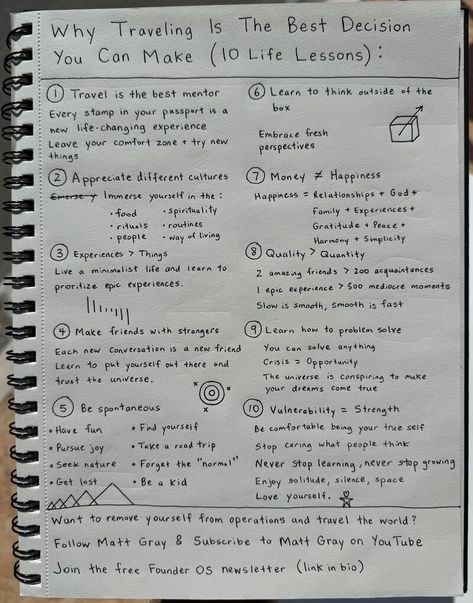 Why Traveling Is The Best Decision
You Can Make (10 Life Lessons):
1 Travel is the best mentor
Every stamp in your passport is a
new life-changing experience
Leave your comfort zone + try new
things
2 Appreciate different cultures
Emerse y Immerse yourself in the:
• food
• rituals
• people
• spirituality
• routines
• way of living
3 Experiences > Things
Live a minimalist life and learn to
prioritize epic experiences.
4 Make friends with strangers
Each new conversation is a new friend
Learn to put yourself out there and
trust the universe.
5 Be spontaneous
• Have fun
• Pursue joy
• Seek nature
• Get lost
• Find yourself
• Take a road trip
• Forget the "normal"
• Be a kid
6 Learn to think outside of the
box
Embrace fresh
perspectives
7 Money ≠ Happiness
Happiness = Relationships + God +
Family + Experiences +
Gratitude + Peace +
Harmony + Simplicity
8 Quality > Quantity
2 amazing friends > 200 acquaintances
1 epic experience > 500 mediocre moments
Slow is smooth, Smooth is fast
9 Learn how to problem solve
You can solve anything
Crisis = Opportunity
The universe is conspiring to make
your dreams come true
10 Vulnerability = Strength
Be comfortable being your true self
Stop caring what people think
Never stop learning, never stop growing
Enjoy solitude, silence, space
Love yourself.
Want to remove yourself from operations and travel the world?
Follow Matt Gray & Subscribe to Matt Gray on YouTube
Join the free Founder OS newsletter (link in bio)